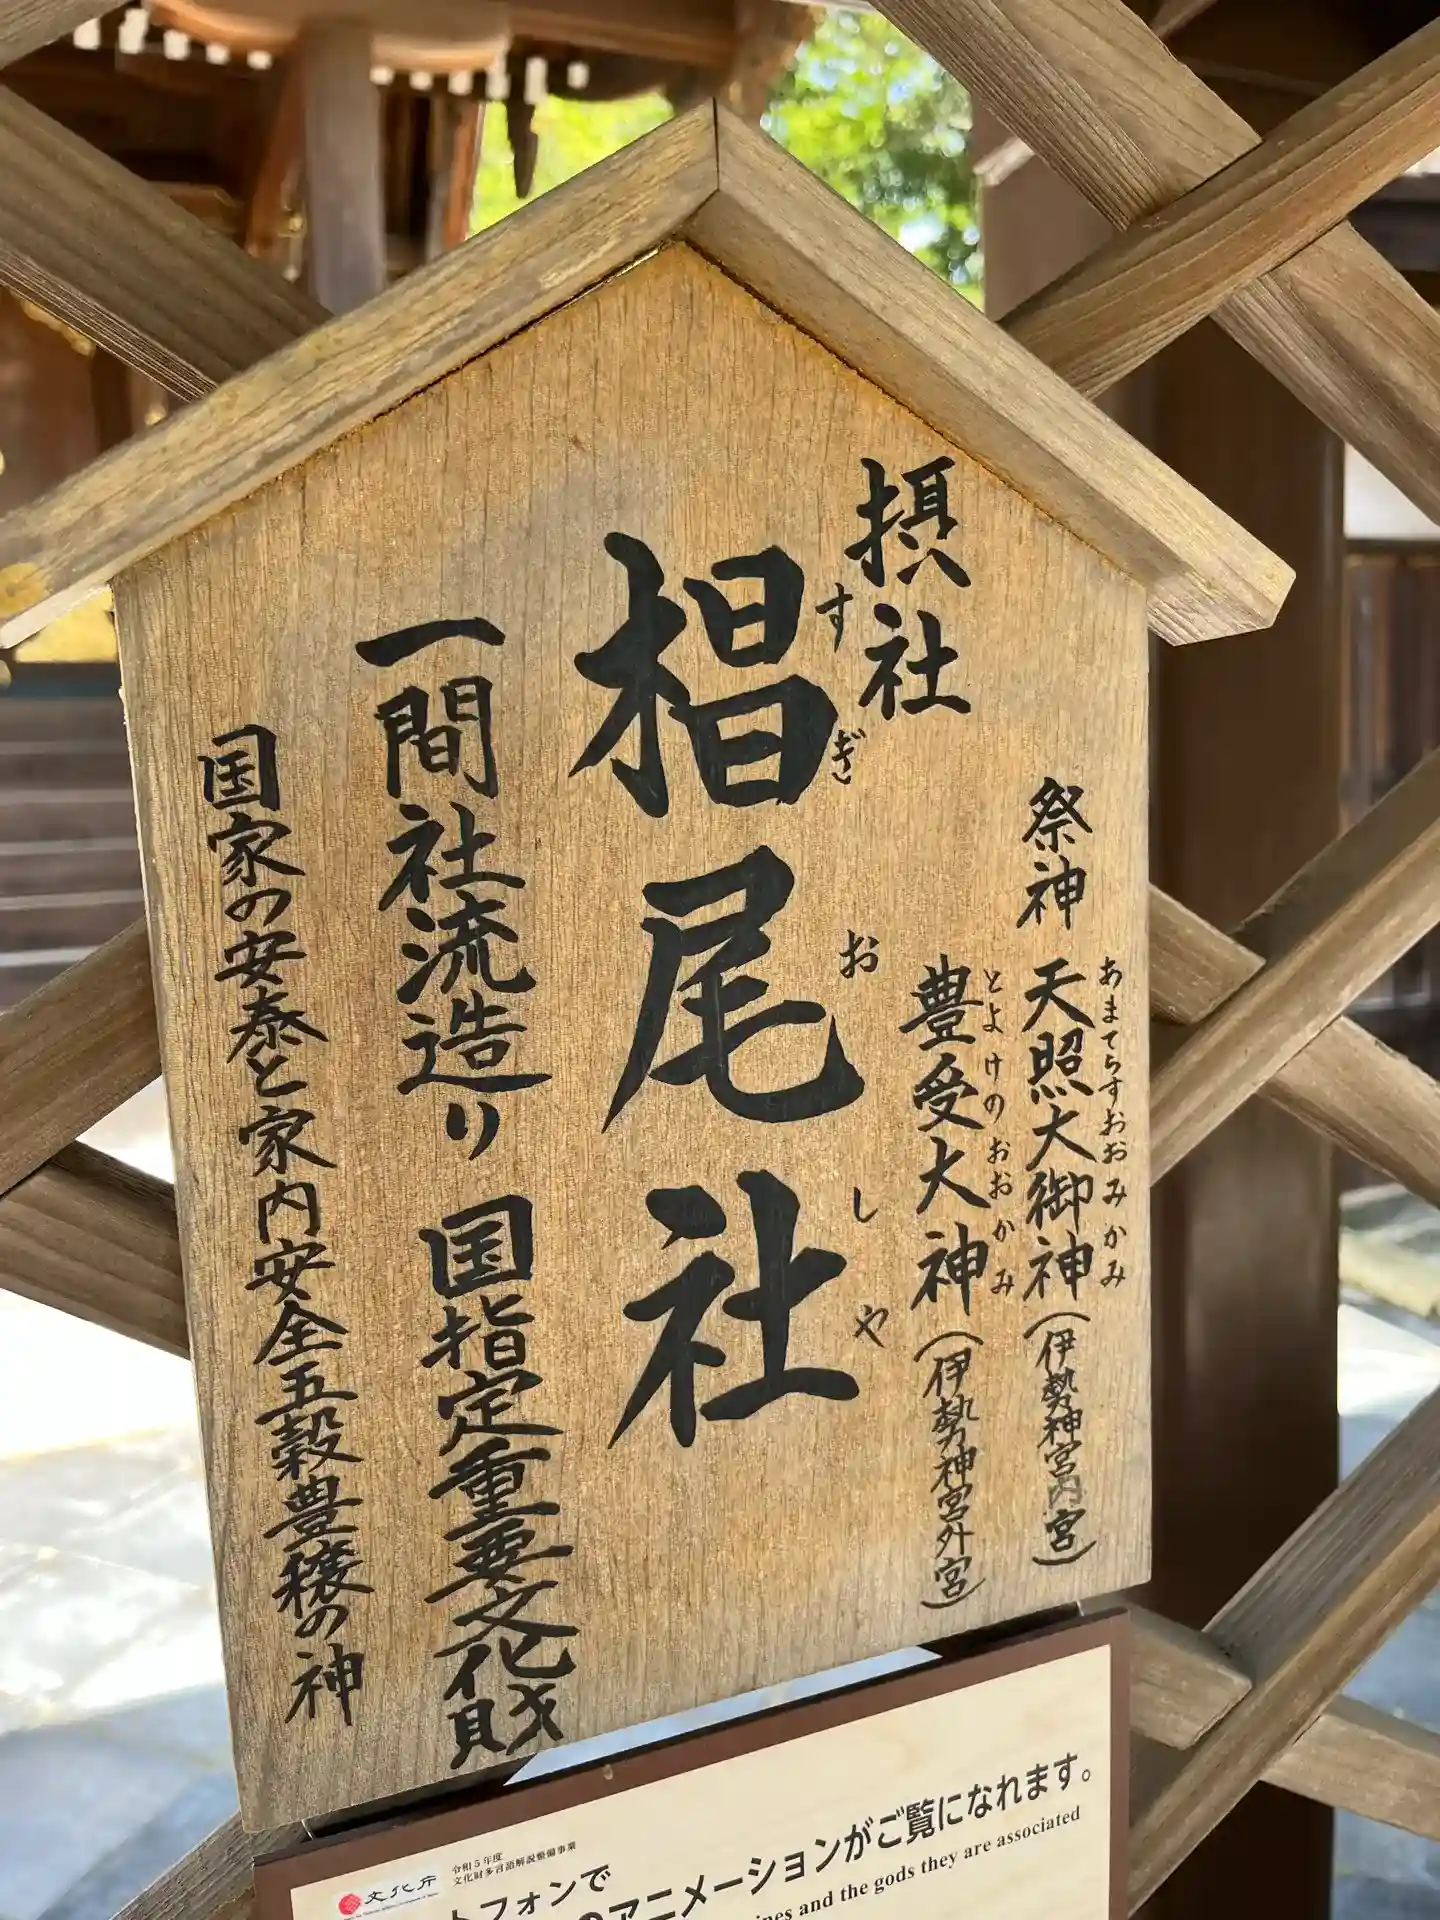 摂社
祭神 天照大御神(伊勢神宮内宮)
あまてらすおおみかみ
豊受大神(伊勢神宮外宮)
とよけのおおかみ
椙尾社
すぎおしゃ
一間社流造り 国指定重要文化財
国家の安泰と家内安全五穀豊穣の神
文化庁
令和5年度
文化財多言語解説整備事業
トフォンで
のアニメーションがご覧になれます。
ines and the gods they are associated